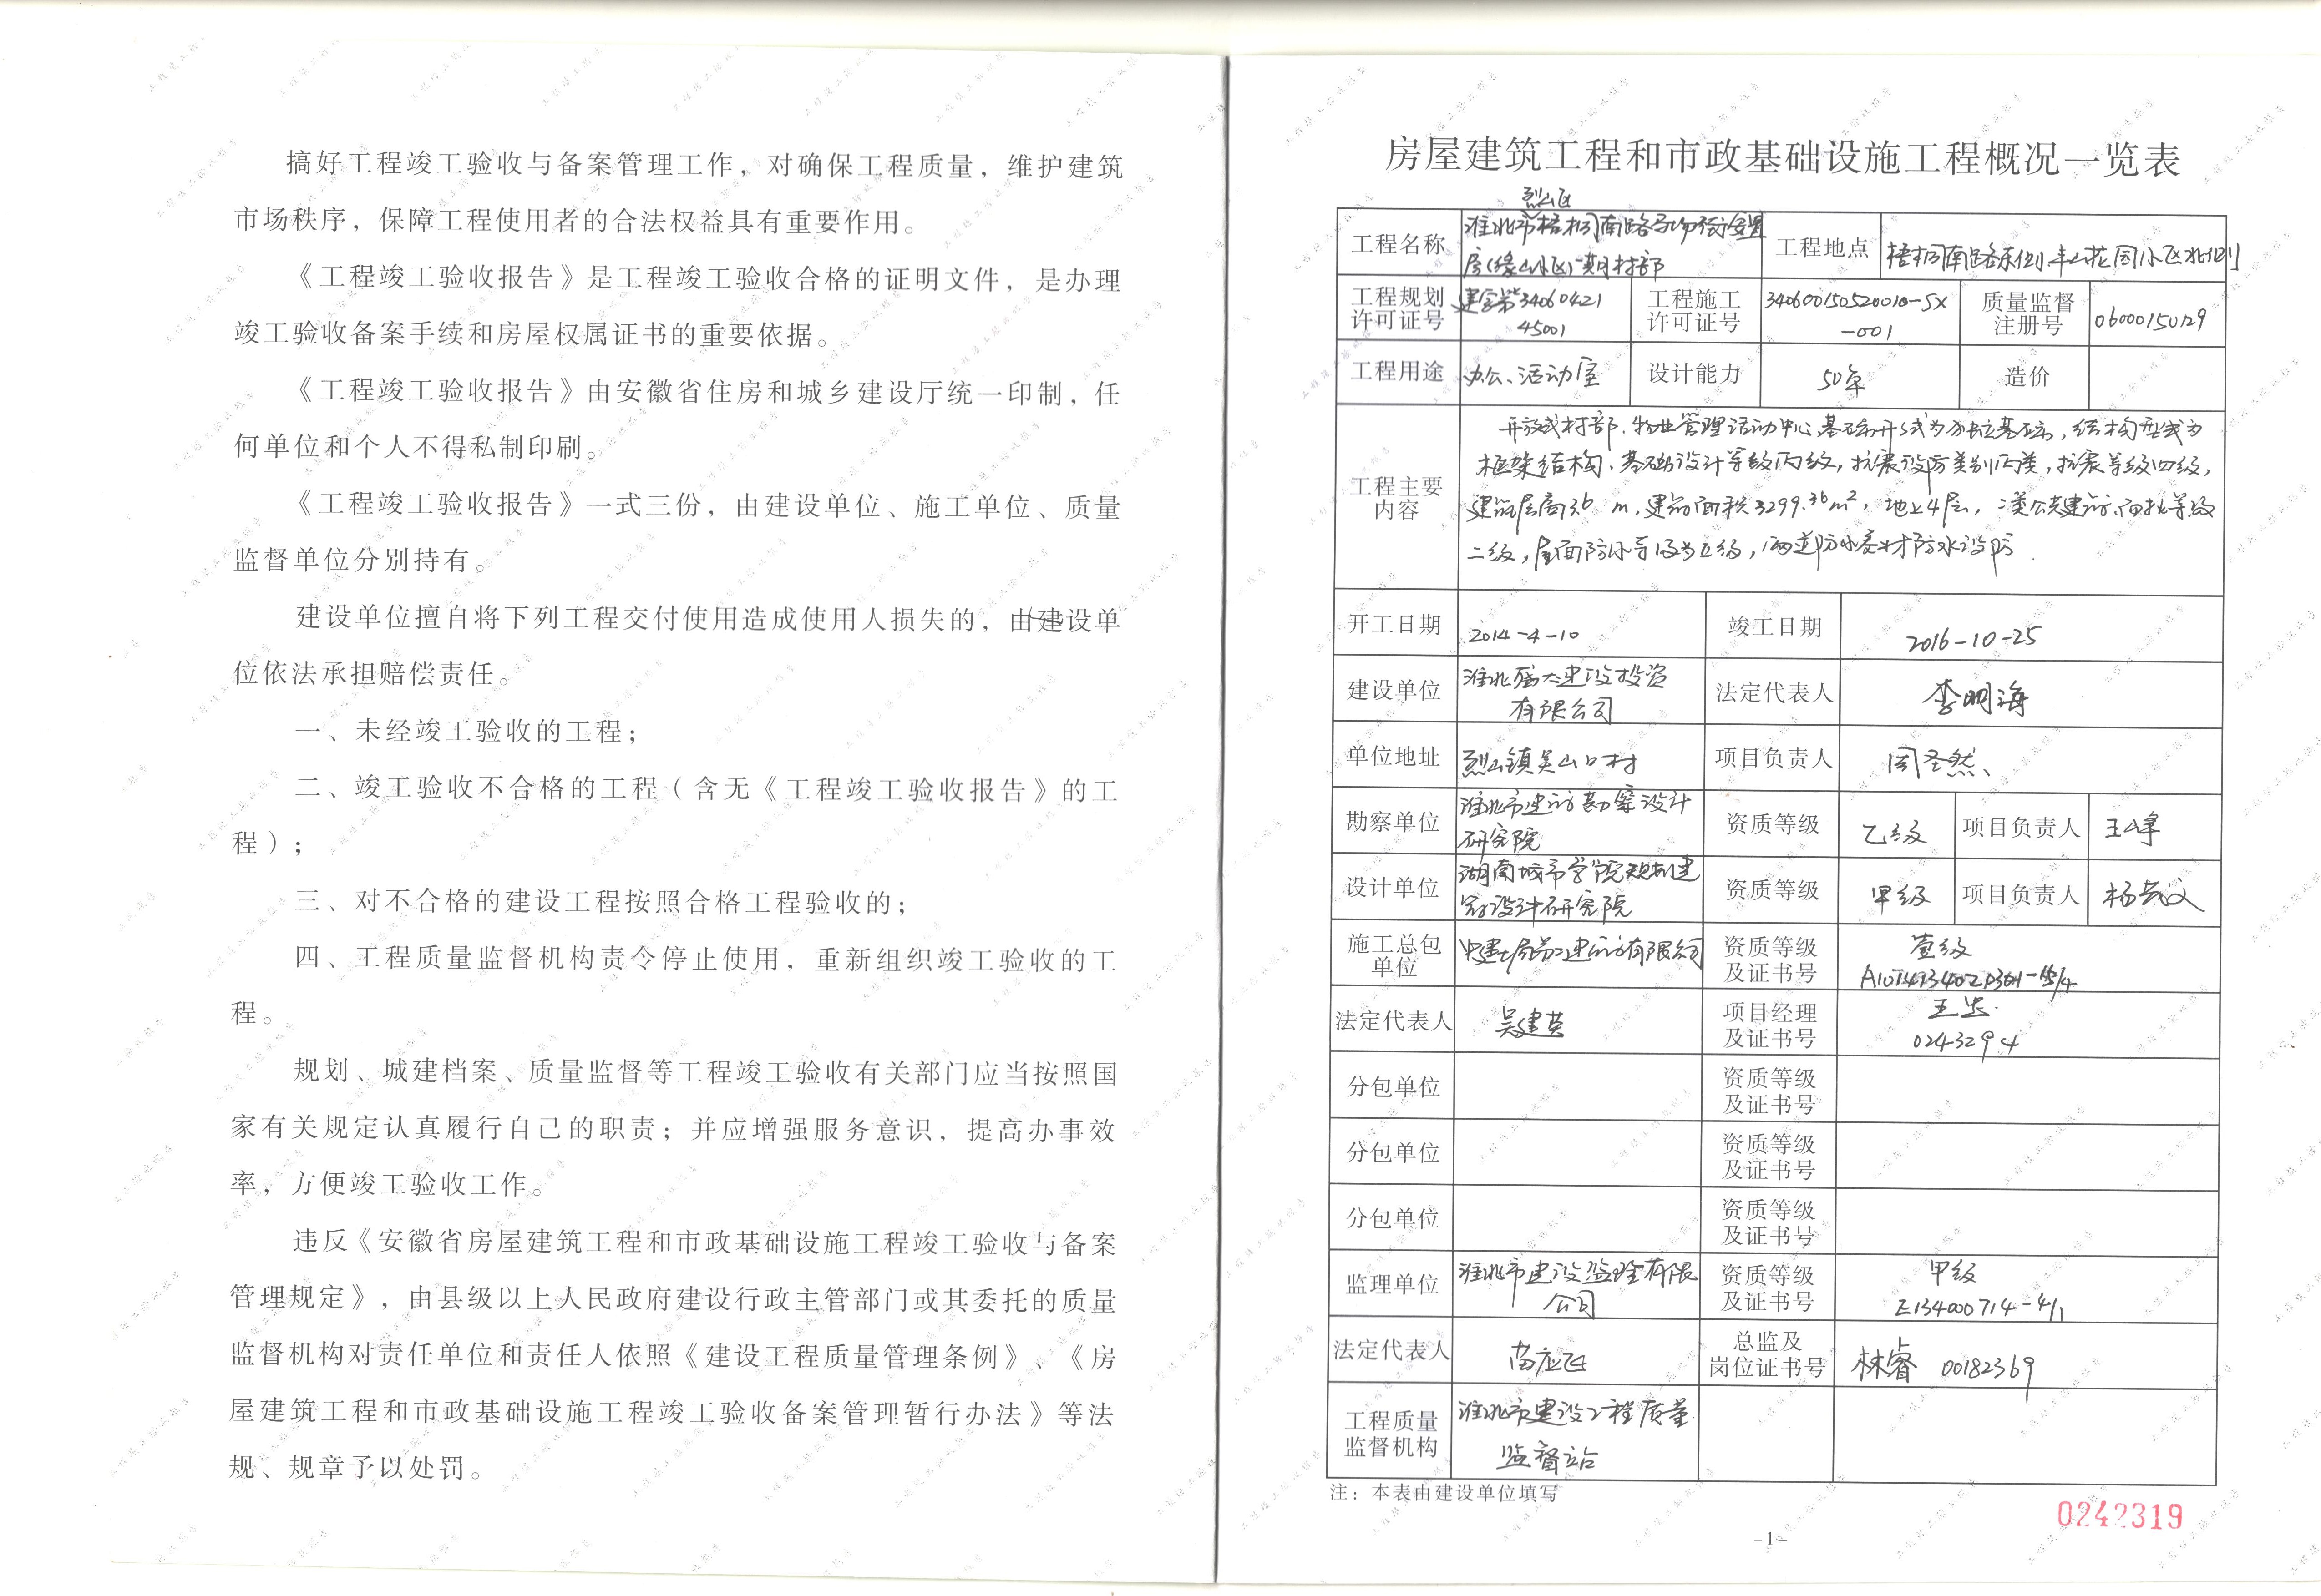 搞好工程竣工验收与备案管理工作，对确保工程质量，维护建筑
市场秩序，保障工程使用者的合法权益具有重要作用。
《工程竣工验收报告》是工程竣工验收合格的证明文件，是办理
竣工验收备案手续和房屋权属证书的重要依据。
《工程竣工验收报告》由安徽省住房和城乡建设厅统一印制，任
何单位和个人不得私制印刷。
《工程竣工验收报告》一式三份，由建设单位、施工单位、质量
监督单位分别持有。
建设单位擅自将下列工程交付使用造成使用人损失的，由建设单
位依法承担赔偿责任。
一、未经竣工验收的工程；
二、竣工验收不合格的工程（含无《工程竣工验收报告》的工
程）；
三、对不合格的建设工程按照合格工程验收的；
四、工程质量监督机构责令停止使用，重新组织竣工验收的工
程。
规划、城建档案、质量监督等工程竣工验收有关部门应当按照国
家有关规定认真履行自己的职责；并应增强服务意识，提高办事效
率，方便竣工验收工作。
违反《安徽省房屋建筑工程和市政基础设施工程竣工验收与备案
管理规定》，由县级以上人民政府建设行政主管部门或其委托的质量
监督机构对责任单位和责任人依照《建设工程质量管理条例》、《房
屋建筑工程和市政基础设施工程竣工验收备案管理暂行办法》等法
规、规章予以处罚。
房屋建筑工程和市政基础设施工程概况一览表
烈山区
工程名称 淮北市梧桐南路 安置
房(缘山小区)一期村部
工程地点 梧桐南路东侧,丰山花园小区北侧
工程规划
许可证号 建字第34060421
45001
工程施工
许可证号 340600150520010-SX
-001
质量监督
注册号 06000150129
工程用途 办公、活动室 设计能力 50年 造价
工程主要
内容
开放式村部、物业管理活动中心,基础形式为独立基础,结构型式为
框架结构,基础设计等级丙级,抗震设防类别丙类,抗震等级四级,
建筑层高3.6 m,建筑面积3299.36m²,地上4层,二类公共建筑,耐火等级
二级,屋面防水等级为II级,两道防水卷材防水设防.
开工日期 2014-4-10 竣工日期 2016-10-25
建设单位 淮北 大建设投资
有限公司
法定代表人 李明海
单位地址 烈山镇吴山口村 项目负责人 周圣然、
勘察单位 淮北市建筑勘察设计
研究院
资质等级 乙级 项目负责人 王峰
设计单位 湖南城市学院规划建
筑设计研究院
资质等级 甲级 项目负责人 杨
施工总包
单位 中建七局第二建筑有限公司
资质等级
及证书号 壹级
法定代表人 吴建英
项目经理
及证书号 王忠.
0243294
分包单位 资质等级
及证书号
分包单位 资质等级
及证书号
分包单位 资质等级
及证书号
监理单位 淮北市建设监理有限
公司
资质等级
及证书号 甲级
E134000714-4/1
法定代表人 苗应飞
总监及
岗位证书号 林睿 00182369
工程质量
监督机构 淮北市建设工程质量
监督站
注：本表由建设单位填写
0242319
-1-
工程竣工验收报告